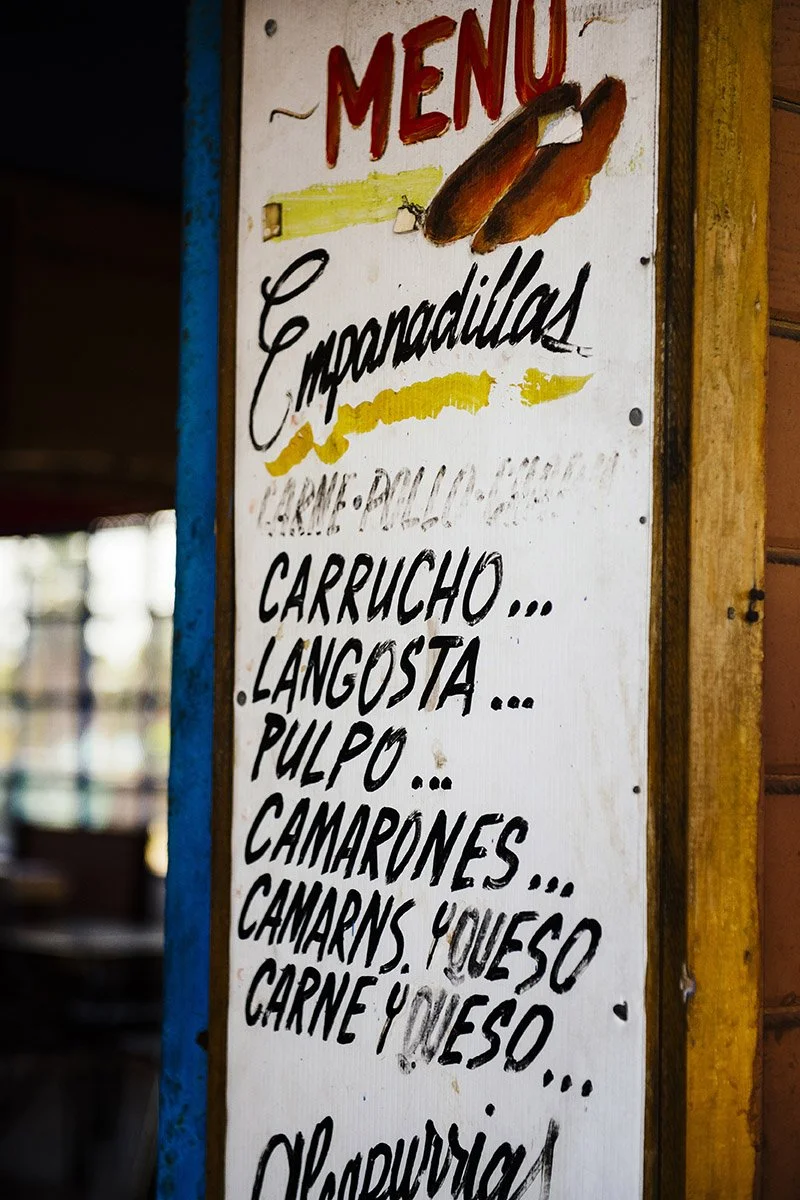 MENU
Empanadillas
CARNE·POLLO·
CARRUCHO...
LANGOSTA...
PULPO...
CAMARONES...
CAMARNS. Y QUESO
CARNE Y QUESO...
Alcapurrias